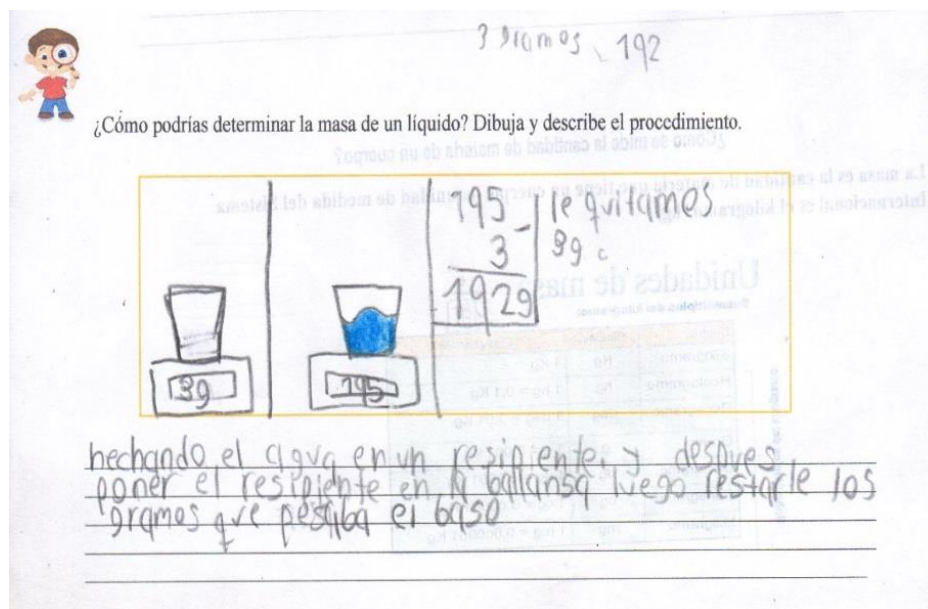 3 gramos 192
¿Cómo podrías determinar la masa de un líquido? Dibuja y describe el procedimiento.
195 le quitamos
3 - 3g
192g
3g
195
hechando el agua en un resipiente, y despues
poner el resipiente en la ballansa luego restarle los
gramos que pesaba el baso